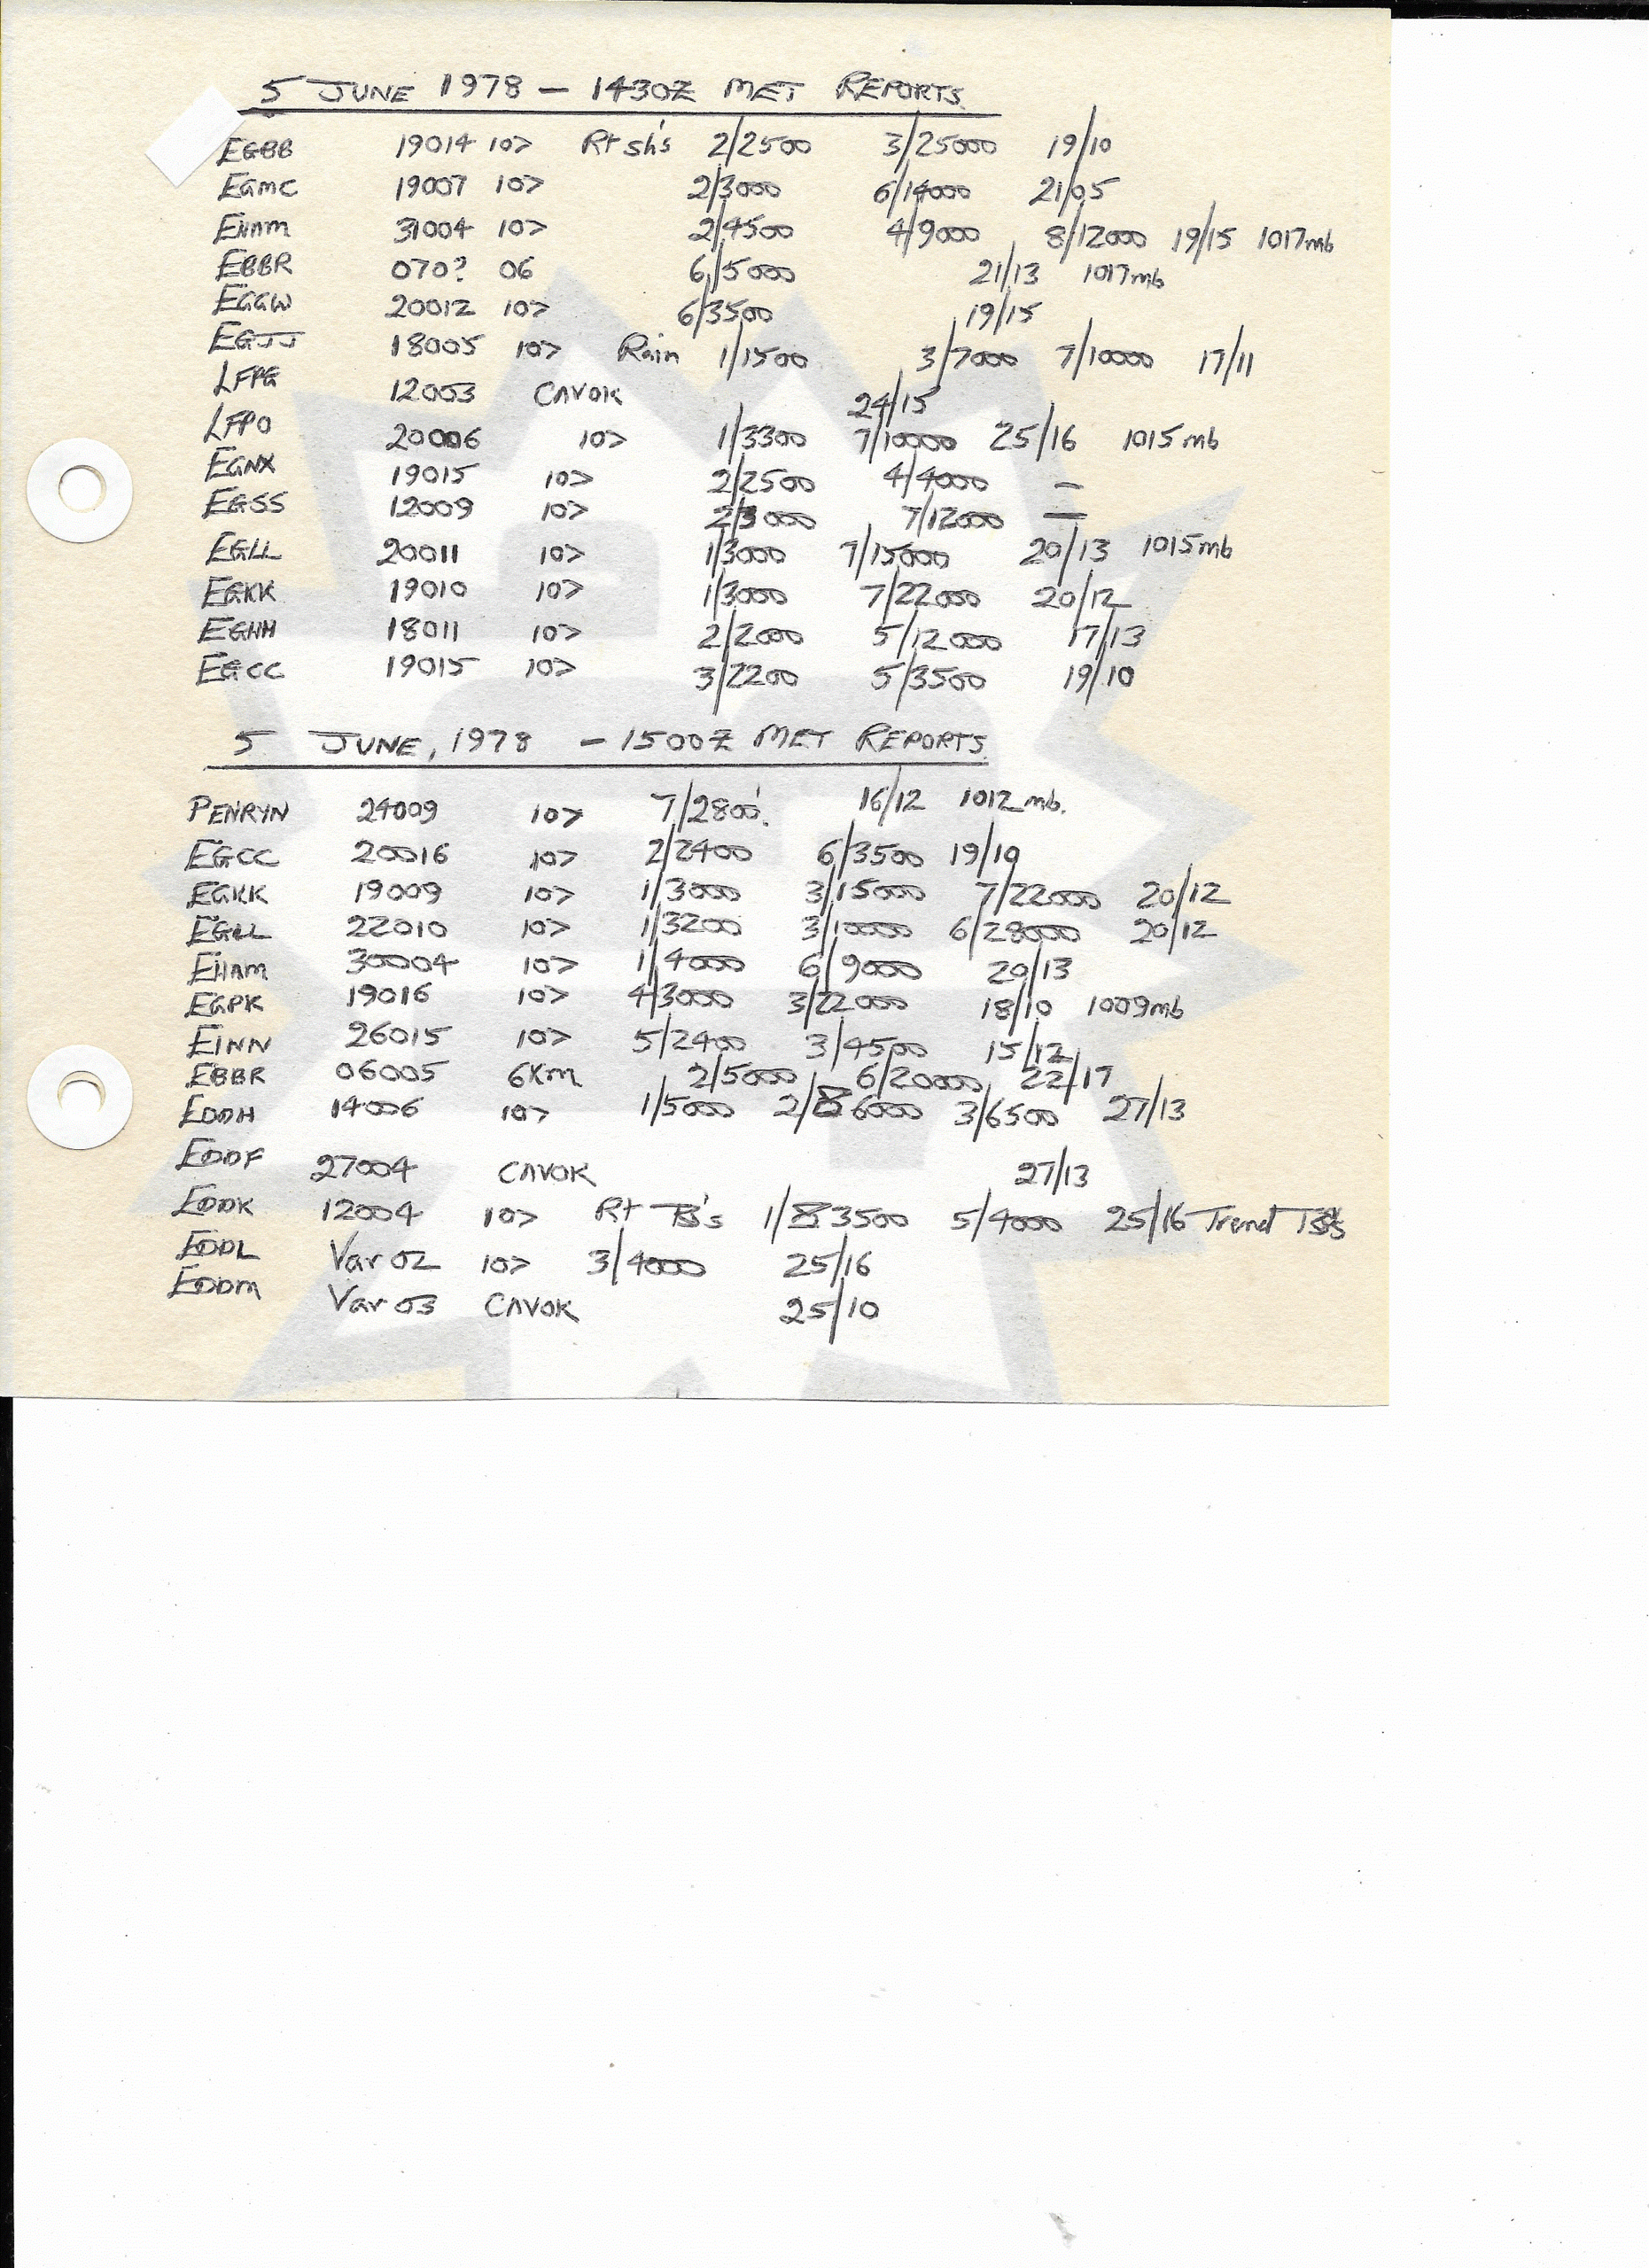 5 JUNE 1978 - 1430Z MET REPORTS.
EGBB 19014 10> Rt sh's 2/2500 3/25000 19/10
EGMC 19007 10> 2/3000 6/14000 21/05
EHAM 31004 10> 2/4500 4/9000 8/12000 19/15 1017mb
EBBR 070? 06 6/5000 21/13 1017mb
EGGW 20012 10> 6/3500 19/15
EGJJ 18005 10> Rain 1/1500 3/7000 7/10000 17/11
LFPG 12003 CAVOK 24/15
LFPO 20006 10> 1/3300 7/10000 25/16 1015mb
EGNX 19015 10> 2/2500 4/4000 -
EGSS 12009 10> 2/3000 7/12000 -
EGLL 20011 10> 1/3000 7/15000 20/13 1015mb
EGKK 19010 10> 1/3000 7/22000 20/12
EGHH 18011 10> 2/2000 5/12000 17/13
EGCC 19015 10> 3/2200 5/3500 19/10
5 JUNE, 1978 - 1500Z MET REPORTS.
PENRYN 24009 10> 7/2800'. 16/12 1012mb.
EGCC 20016 10> 2/2400 6/3500 19/10
EGKK 19009 10> 1/3000 3/15000 7/22000 20/12
EGLL 22010 10> 1/3200 3/10000 6/28000 20/12
EHAM 30004 10> 1/4000 6/9000 20/13
EGPK 19016 10> 4/3000 3/22000 18/10 1009mb
EINN 26015 10> 5/2400 3/4500 15/12
EBBR 06005 6Km 2/5000 6/20000 22/17
EDDH 14006 10> 1/5000 2/6000 3/6500 27/13
EDDF 27004 CAVOK 27/13
EDDK 12004 10> Rt TS's 1/3500 5/4000 25/16 Trend TS's
EDDL Var 02 10> 3/4000 25/16
EDDM Var 03 CAVOK 25/10